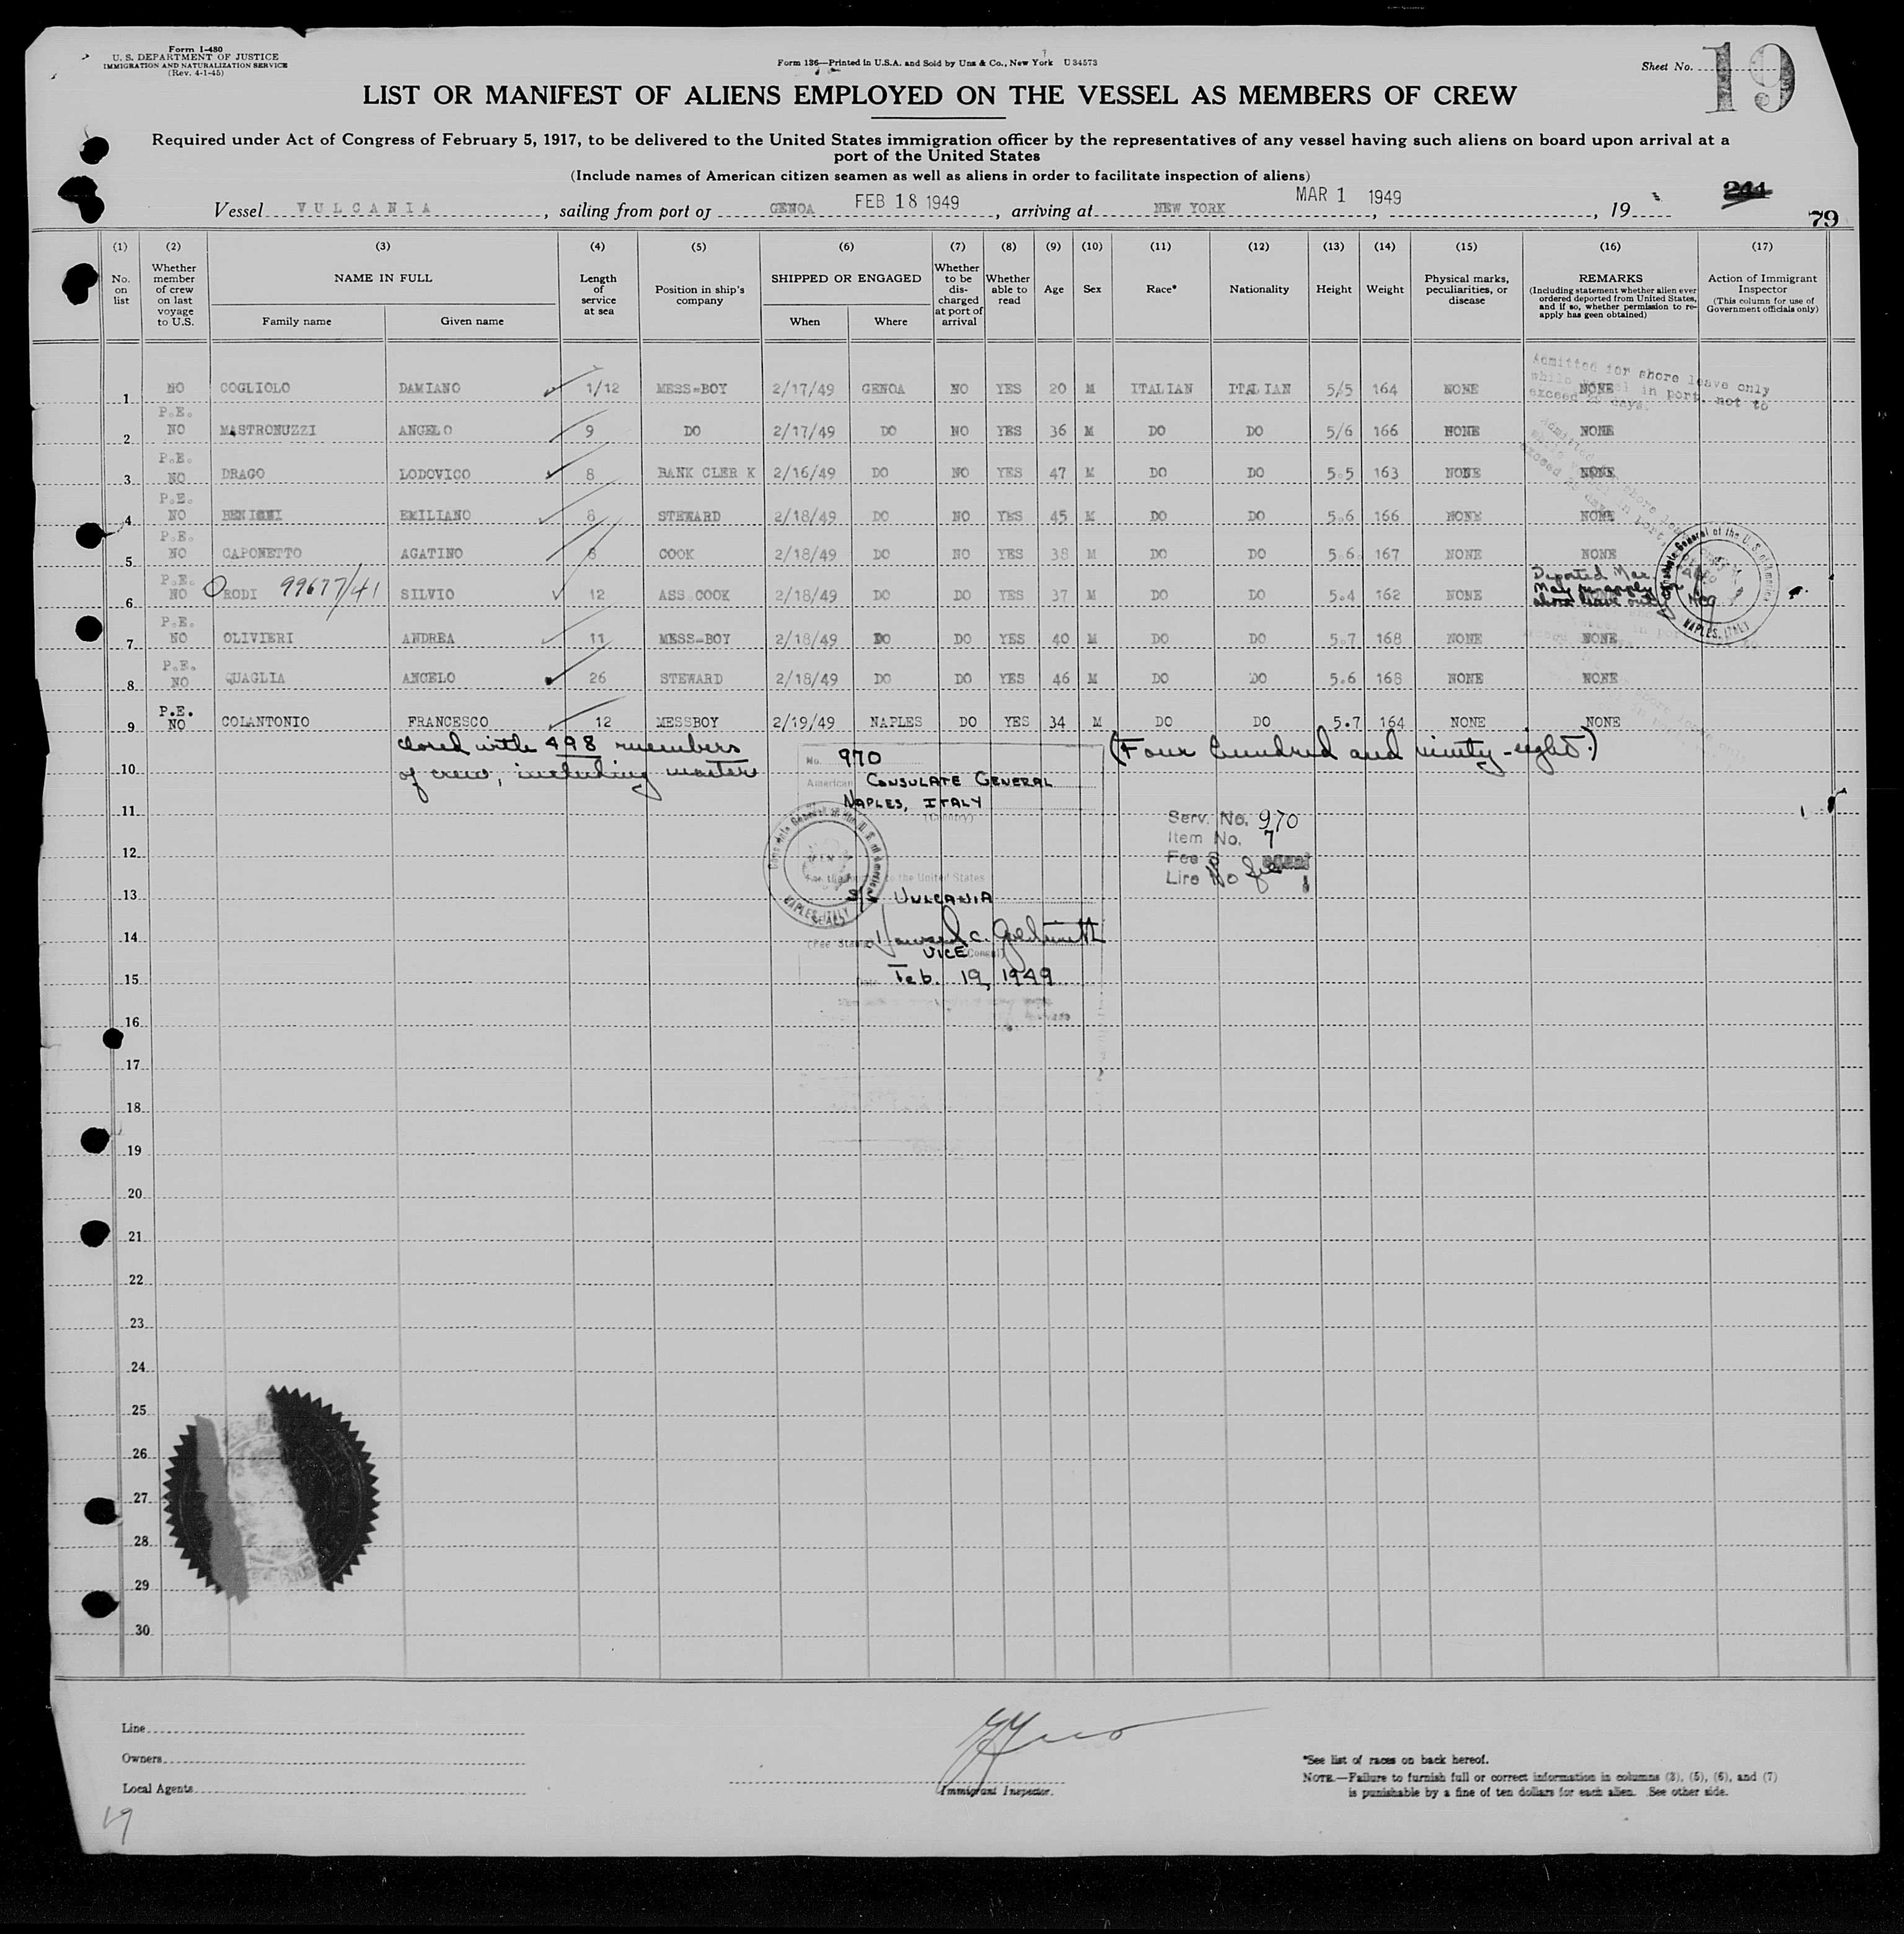 Form I-480
U. S. DEPARTMENT OF JUSTICE
IMMIGRATION AND NATURALIZATION SERVICE
(Rev. 4-1-45)
Form 136—Printed in U.S.A. and Sold by Unz & Co., New York U 34573
Sheet No. 19
LIST OR MANIFEST OF ALIENS EMPLOYED ON THE VESSEL AS MEMBERS OF CREW
Required under Act of Congress of February 5, 1917, to be delivered to the United States immigration officer by the representatives of any vessel having such aliens on board upon arrival at a
port of the United States
(Include names of American citizen seamen as well as aliens in order to facilitate inspection of aliens)
Vessel VULCANIA, sailing from port of GENOA FEB 18 1949, arriving at NEW YORK MAR 1 1949, 19
79
(1) (2) (3) (4) (5) (6) (7) (8) (9) (10) (11) (12) (13) (14) (15) (16) (17)
No. on list
Whether member of crew on last voyage to U.S.
NAME IN FULL
Family name Given name
Length of service at sea
Position in ship's company
SHIPPED OR ENGAGED
When Where
Whether to be discharged at port of arrival
Whether able to read
Age
Sex
Race*
Nationality
Height
Weight
Physical marks, peculiarities, or disease
REMARKS
(Including statement whether alien ever ordered deported from United States, and if so, whether permission to re-apply has geen obtained)
Action of Immigrant Inspector
(This column for use of Government officials only)
1 NO COGLIOLO DAMIANO 1/12 MESS-BOY 2/17/49 GENOA NO YES 20 M ITALIAN ITALIAN 5/5 164 NONE NONE
Admitted for shore leave only
while vessel in port, not to
exceed 29 days.
P.E.
2 NO MASTRONUZZI ANGELO 9 DO 2/17/49 DO NO YES 36 M DO DO 5/6 166 NONE NONE
P.E.
3 NO DRAGO LODOVICO 8 BANK CLERK 2/16/49 DO NO YES 47 M DO DO 5.5 163 NONE NONE
P.E.
4 NO BENIGNI EMILIANO 8 STEWARD 2/18/49 DO NO YES 45 M DO DO 5.6 166 NONE NONE
P.E.
5 NO CAPONETTO AGATINO 8 COOK 2/18/49 DO NO YES 38 M DO DO 5.6 167 NONE NONE
P.E.
6 NO RODI 99677/41 SILVIO 12 ASS COOK 2/18/49 DO DO YES 37 M DO DO 5.4 162 NONE
Deported Mar
May reapply
shore leave only
P.E.
7 NO OLIVIERI ANDREA 11 MESS-BOY 2/18/49 DO DO YES 40 M DO DO 5.7 168 NONE NONE
P.E.
8 NO QUAGLIA ANGELO 26 STEWARD 2/18/49 DO DO YES 46 M DO DO 5.6 168 NONE NONE
P.E.
9 NO COLANTONIO FRANCESCO 12 MESSBOY 2/19/49 NAPLES DO YES 34 M DO DO 5.7 164 NONE NONE
closed with 498 members (Four hundred and ninety-eight.)
10 of crew, including masters
No. 970
American CONSULATE GENERAL
NAPLES, ITALY
(Country)
11
Serv. No. 970
Item No. 7
Fee $
Lire No fee
12
Consulate General of the U. S. of America
NAPLES, ITALY
13
S/S VULCANIA
14
(Fee Stamp) Howard C. Goldsmith
VICE (Consul)
15 Feb. 19, 1949
16
17
18
19
20
21
22
23
24
25
26
27
28
29
30
Line
Owners
Local Agents
Immigrant Inspector.
*See list of races on back hereof.
NOTE.—Failure to furnish full or correct information in columns (3), (5), (6), and (7)
is punishable by a fine of ten dollars for each alien. See other side.
19